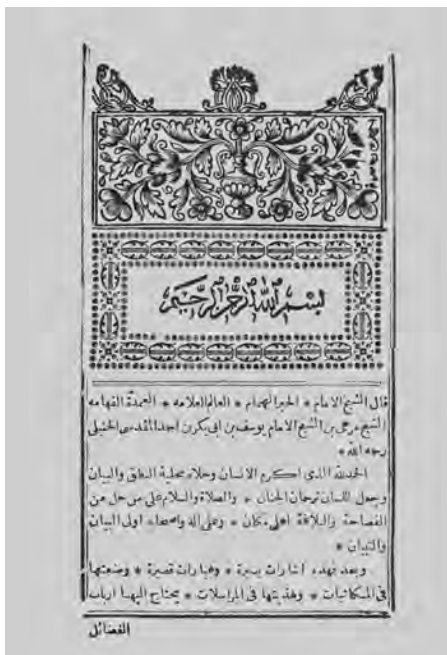 بسم الله الرحمن الرحيم
قال الشيخ الامام * الحبر الهمام * العالم العلامه * العمدة الفهامه
الشيخ مرعى بن الشيخ الامام يوسف بن ابى بكر بن احمد المقدسى الحنبلى
رحمه الله *
الحمد لله الذى اكرم الانسان وحلاه بحلية النطق والبيان
وجعل اللسان ترجمان الجنان * والصلاة والسلام على من حل من
الفصاحة والبلاغة اعلى مكان * وعلى آله واصحابه اولى البيان
والتبيان *
وبعد فهذه اشارات يسيرة * وعبارات قصيرة * وضعتها
فى المكاتبات * وهذبتها فى المراسلات * يحتاج اليها ارباب
الفضائل